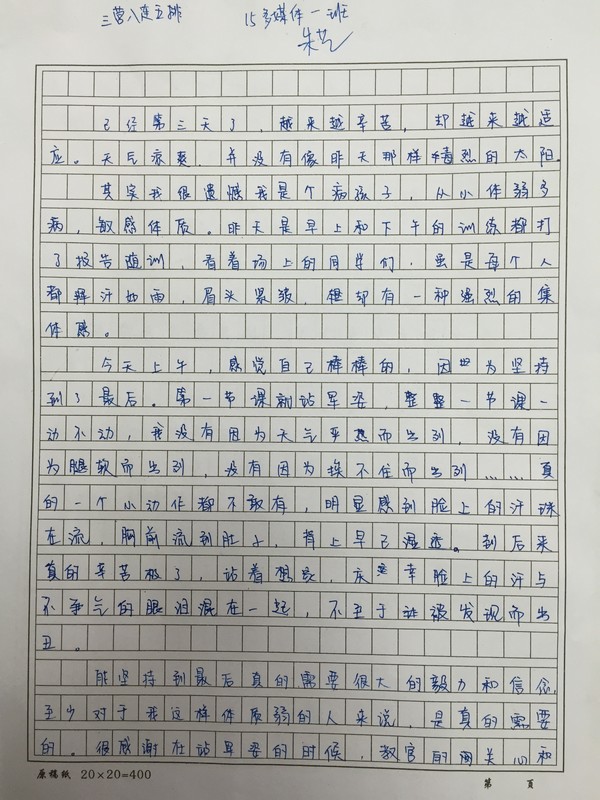 三营八连五排 15多媒体一班
朱艺
已经第三天了，越来越辛苦，却越来越适
应。天气凉爽，并没有像昨天那样情烈的太阳。
其实我很遗憾我是个病孩子，从小体弱多
病，敏感体质。昨天是早上和下午的训练都打
了报告随训，看着场上的同学们，虽是每个人
都挥汗如雨，眉头紧皱，但却有一种强烈的集
体感。
今天上午，感觉自己棒棒的，因为坚持
到了最后。第一节课就站军姿，整整一节课一
动不动，我没有因为天气炎热而出列，没有因
为腿软而出列，没有因为挨不住而出列……真
的一个小动作都不敢有，明显感到脸上的汗珠
在流，胸前流到肚子，背上早已湿透。到后来
真的辛苦极了，站着想哭，庆幸脸上的汗与
不争气的眼泪混在一起，不至于被发现而出
丑。
能坚持到最后真的需要很大的毅力和信念，
至少对于我这样体质弱的人来说，是真的需要
的。很感谢在站军姿的时候，教官的关心和
原稿纸 20×20=400 第 页